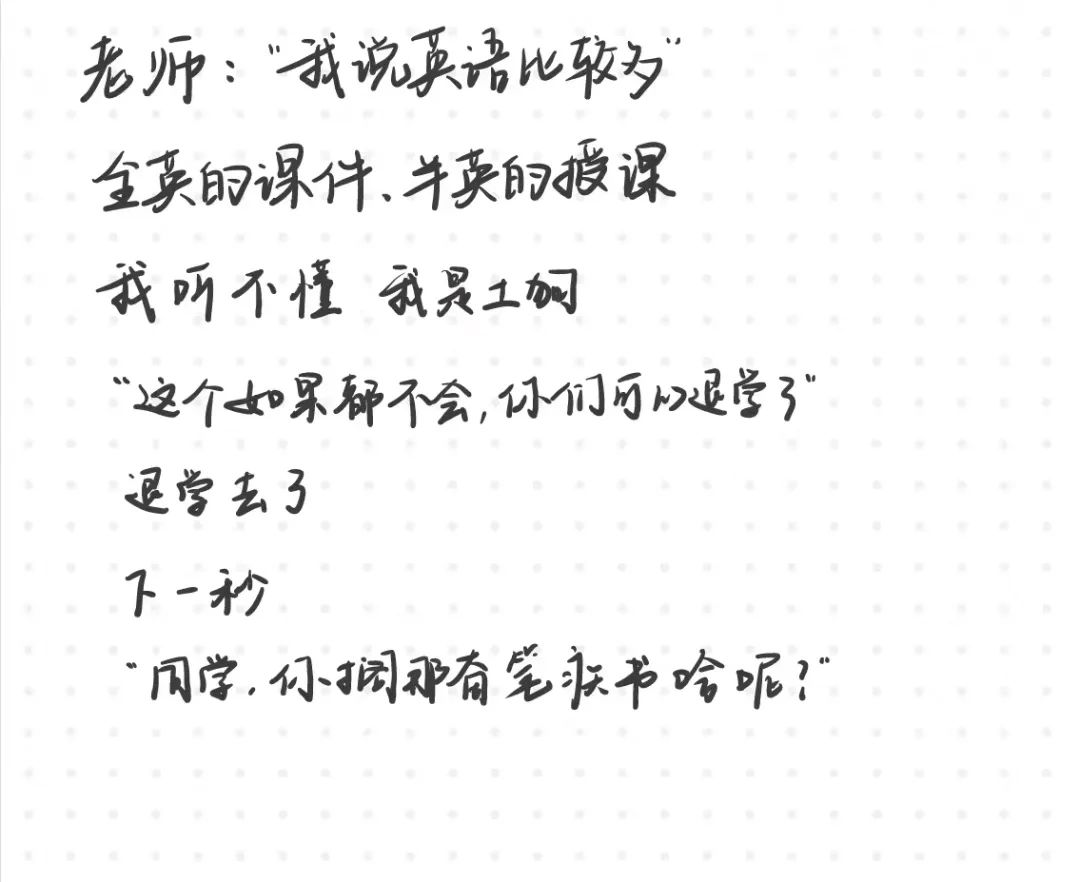 老师："我说英语比较多"
全英的课件、半英的授课
我听不懂 我是土狗
"这个如果都不会,你们可以退学了"
退学去了
下一秒
"同学,你搁那奋笔疾书啥呢?"